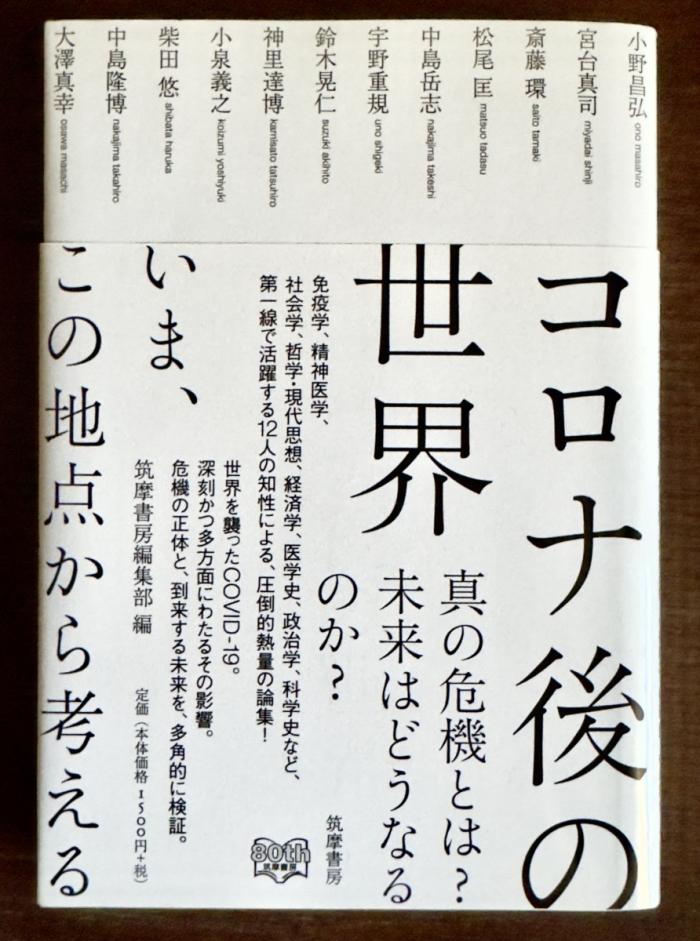 小野昌弘 ono masahiro
宮台真司 miyadai shinji
斎藤 環 saito tamaki
松尾 匡 matsuo tadasu
中島岳志 nakajima takeshi
宇野重規 uno shigeki
鈴木晃仁 suzuki akihito
神里達博 kamisato tatsuhiro
小泉義之 koizumi yoshiyuki
柴田 悠 shibata haruka
中島隆博 nakajima takahiro
大澤真幸 osawa masachi
コロナ後の
世界
真の危機とは?
未来はどうなる
のか?
筑摩書房
免疫学、精神医学、
社会学、哲学・現代思想、経済学、医学史、政治学、科学史など、
第一線で活躍する12人の知性による、圧倒的熱量の論集!
80th
筑摩書房
世界を襲ったCOVID-19。
深刻かつ多方面にわたるその影響。
危機の正体と、到来する未来を、多角的に検証。
いま、
筑摩書房編集部 編
定価(本体価格1500円+税)
この地点から考える